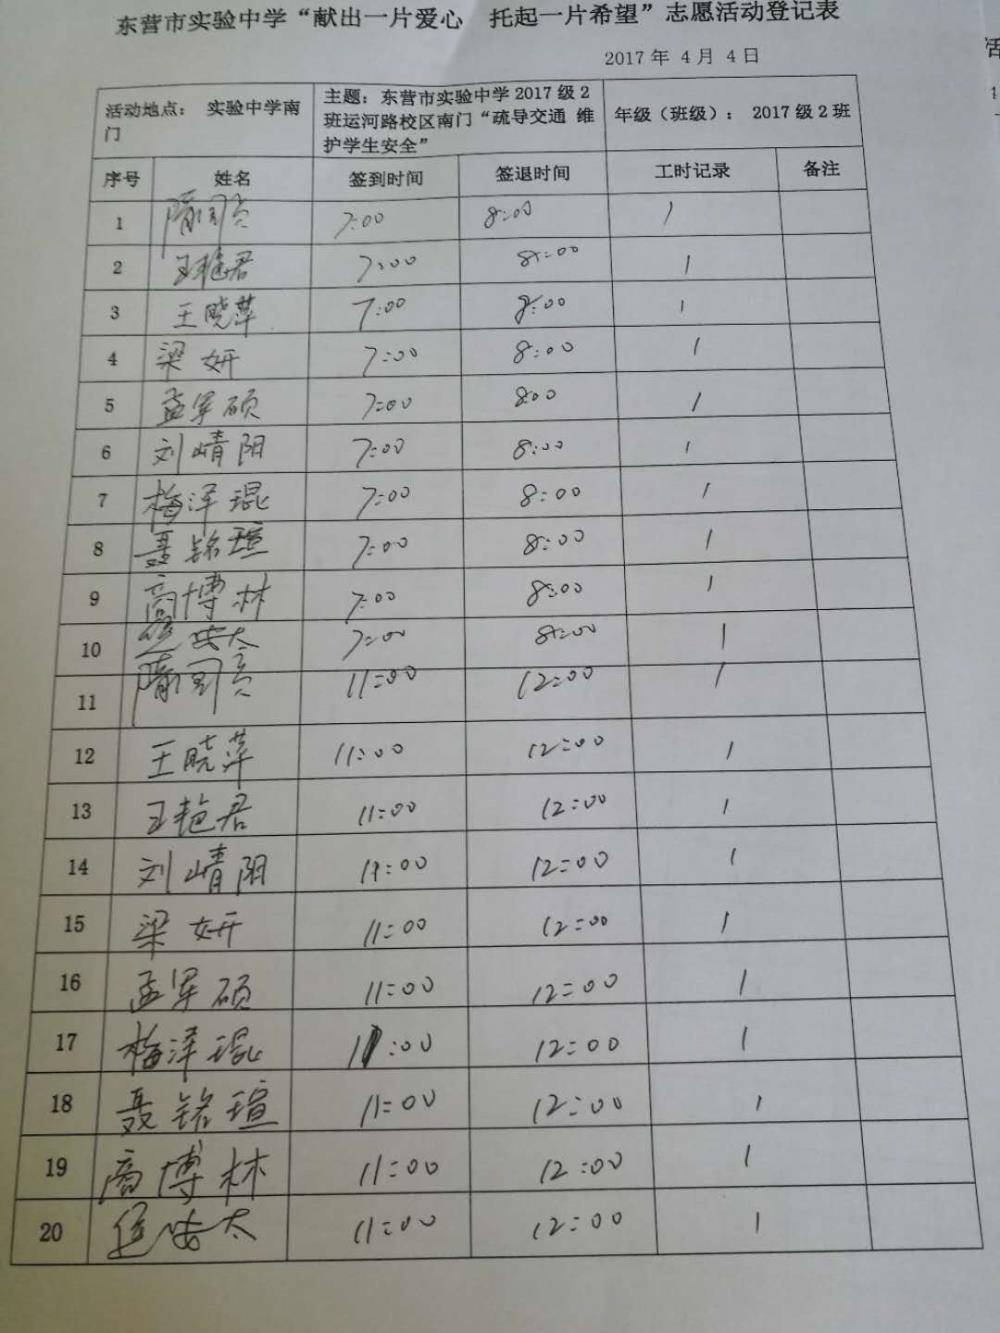 东营市实验中学“献出一片爱心 托起一片希望”志愿活动登记表
2017 年 4 月 4 日
活动地点： 实验中学南门 主题：东营市实验中学2017级2班运河路校区南门“疏导交通 维护学生安全” 年级（班级）： 2017级2班
序号 姓名 签到时间 签退时间 工时记录 备注
1 7:00 8:00 1
2 王艳君 7:00 8:00 1
3 王晓萍 7:00 8:00 1
4 梁妍 7:00 8:00 1
5 孟军硕 7:00 800 1
6 刘晴阳 7:00 8:00 1
7 梅泽琨 7:00 8:00 1
8 聂铭瑄 7:00 8:00 1
9 商博林 7:00 8:00 1
10 7:00 8:00 1
11 11:00 12:00 1
12 王晓萍 11:00 12:00 1
13 王艳君 11:00 12:00 1
14 刘晴阳 11:00 12:00 1
15 梁妍 11:00 12:00 1
16 孟军硕 11:00 12:00 1
17 梅泽琨 11:00 12:00 1
18 聂铭瑄 11:00 12:00 1
19 商博林 11:00 12:00 1
20 11:00 12:00 1
活